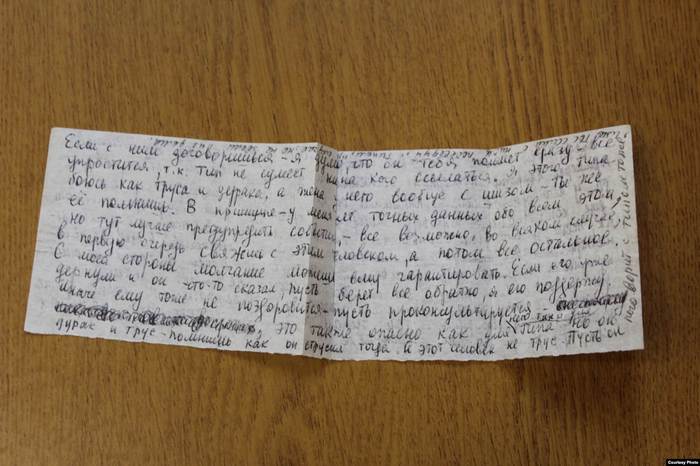 Если с ним договоришься - я думаю, что он тебя поймет сразу - все
упростится, т.к. Тип не сумеет ни на кого ссылаться. Я этого типа
боюсь как труса и дурака, а жена у него вообще с шизом - ты же
её помнишь. В принципе - у меня нет точных данных обо всем этом,
но тут лучше предупредить события, - все возможно, во всяком случае,
в первую очередь свяжись с этим человеком, а потом все остальное.
С моей стороны молчание можешь ему гарантировать. Если его уже
дернули и он что-то сказал, пусть берет все обратно, я его поддержу,
иначе ему тоже не поздоровится - пусть проконсультируется
это также опасно как для Типа. Но он
дурак и трус - помнишь как он струсил тогда. А этот человек не трус. Пусть он
Courtesy Photo